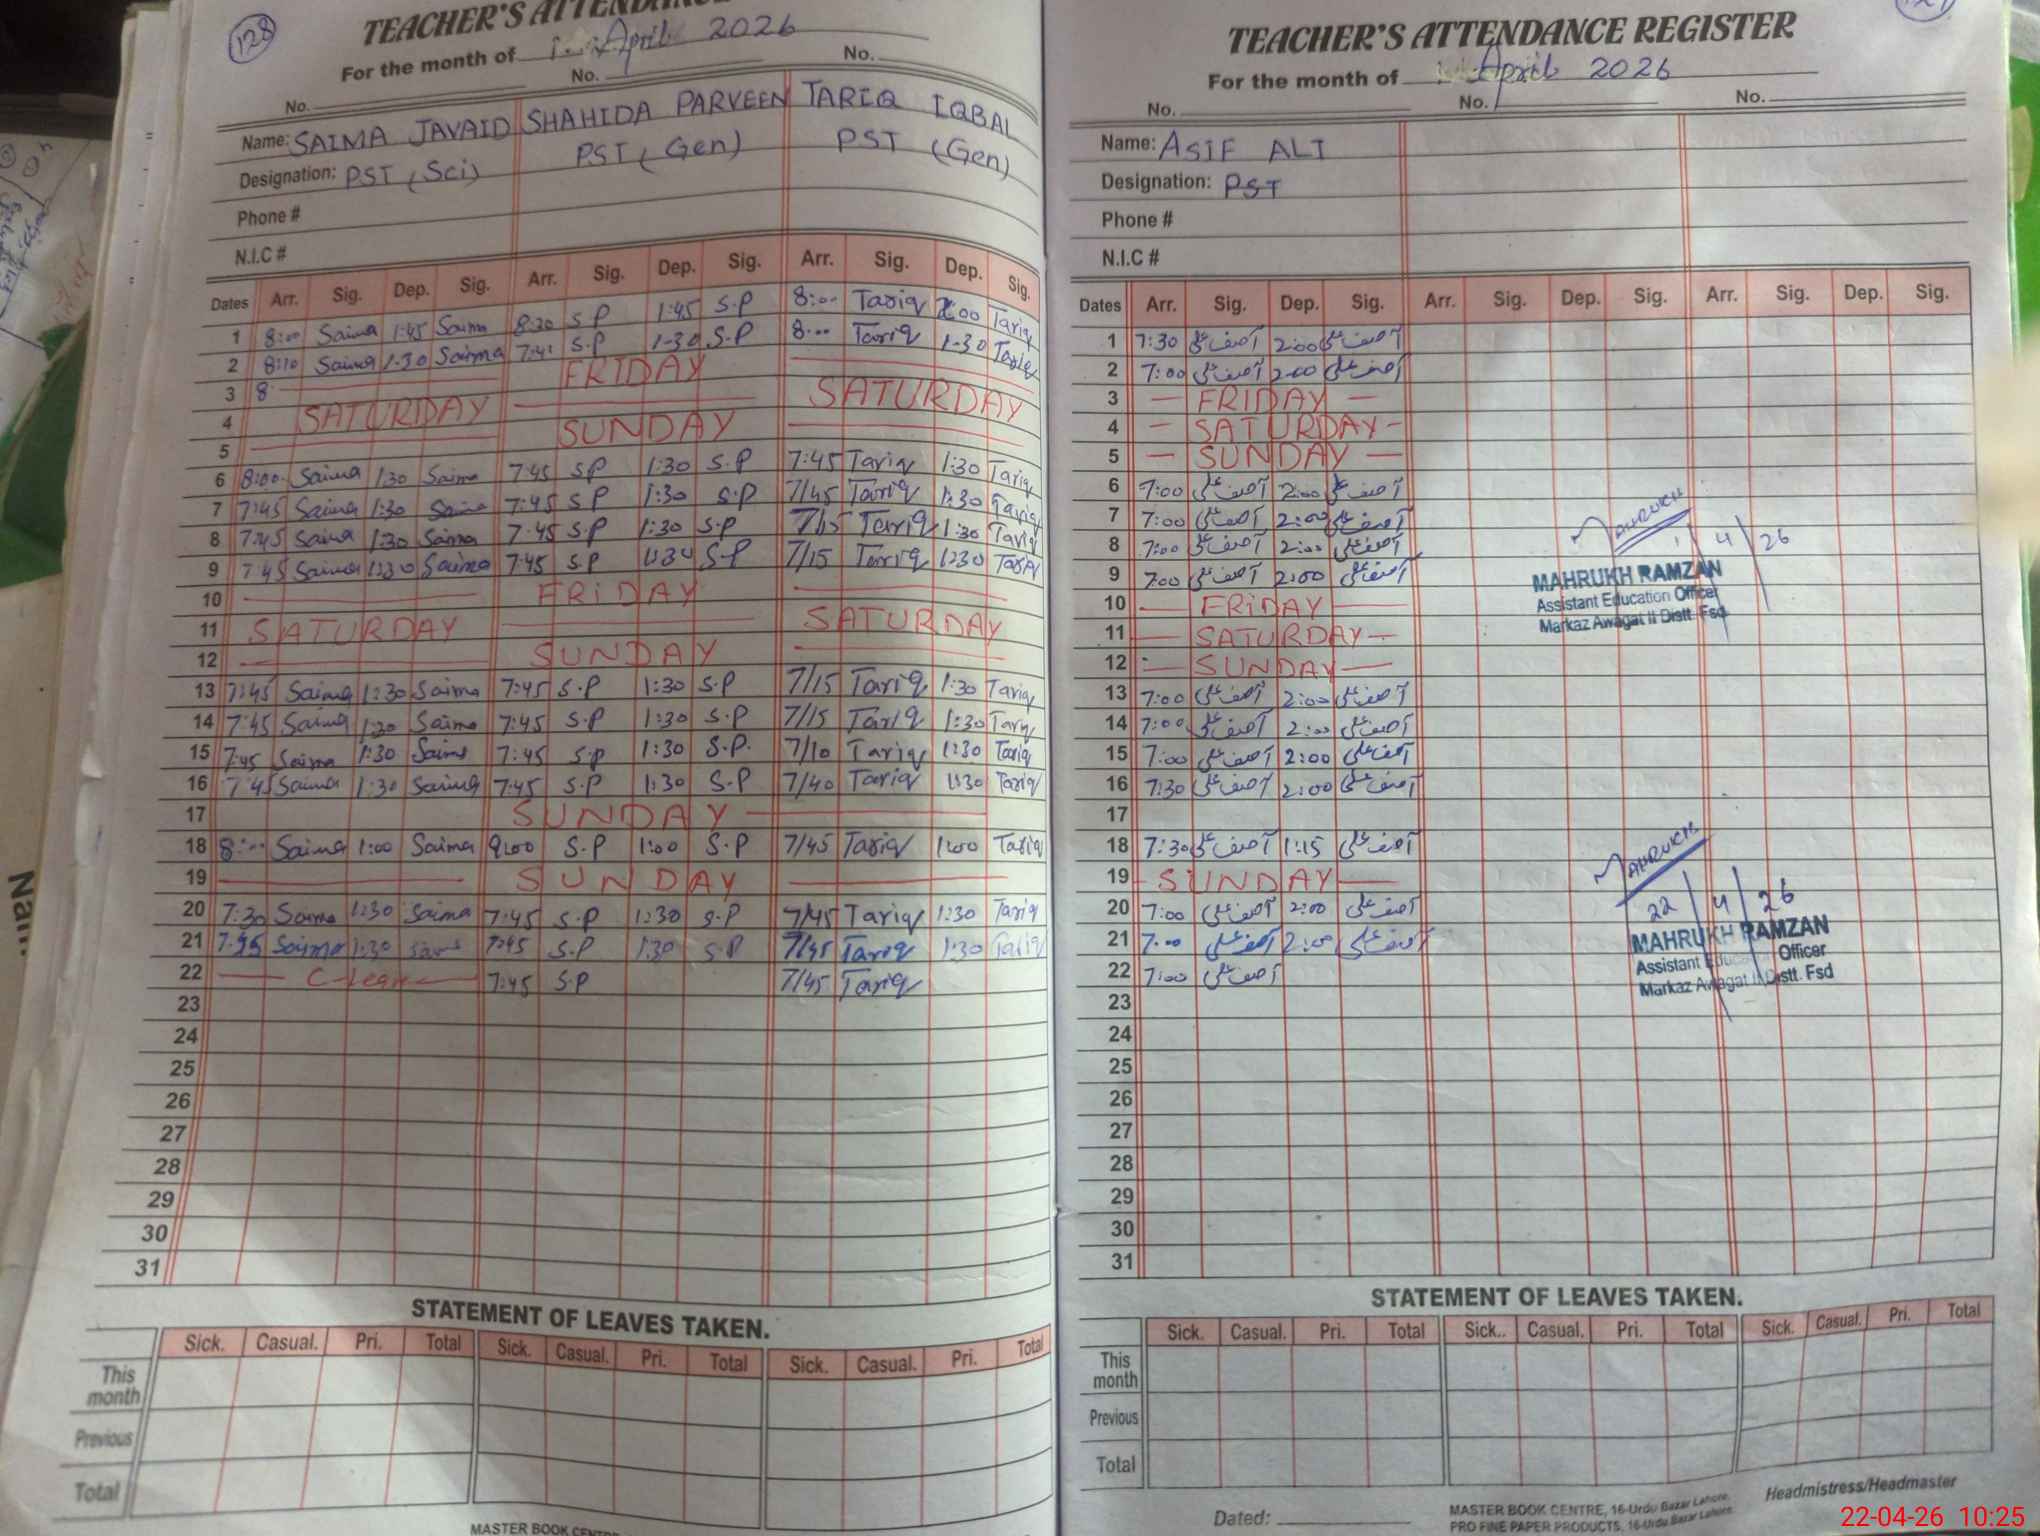 128
TEACHER'S ATTENDANCE
For the month of April 2026
No. No. No.
Name: SAIMA JAVAID SHAHIDA PARVEEN TARIQ IQBAL
Designation: PST (Sci) PST (Gen) PST (Gen)
Phone #
N.I.C #
Dates Arr. Sig. Dep. Sig. Arr. Sig. Dep. Sig. Arr. Sig. Dep. Sig.
1 8:00 Saima 1:45 Saima 8:20 S.P 1:45 S.P 8:00 Tariq 2:00 Tariq
2 8:10 Saima 1-30 Saima 7:41 S.P 1-30 S.P 8:00 Tariq 1-30 Tariq
3 8 FRIDAY
4 SATURDAY SATURDAY
5 SUNDAY
6 8:00 Saima 1:30 Saima 7:45 SP 1:30 S.P 7:45 Tariq 1:30 Tariq
7 7:45 Saima 1:30 Saima 7:45 SP 1:30 S.P 7/45 Tariq 1:30 Tariq
8 7:45 Saima 1:30 Saima 7:45 SP 1:30 S.P 7/15 Tariq 1:30 Tariq
9 7:45 Saima 1:30 Saima 7:45 S.P 1:30 S.P 7/15 Tariq 1:30 Tariq
10 FRIDAY
11 SATURDAY SATURDAY
12 SUNDAY
13 7:45 Saima 1:30 Saima 7:45 S.P 1:30 S.P 7/15 Tariq 1:30 Tariq
14 7:45 Saima 1:30 Saima 7:45 S.P 1:30 S.P 7/15 Tariq 1:30 Tariq
15 7:45 Saima 1:30 Saima 7:45 S.P 1:30 S.P. 7/10 Tariq 1:30 Tariq
16 7:45 Saima 1:30 Saima 7:45 S.P 1:30 S.P 7/40 Tariq 1:30 Tariq
17 SUNDAY
18 8:00 Saima 1:00 Saima 9:00 S.P 1:00 S.P 7/45 Tariq 1:00 Tariq
19 SUNDAY
20 7:30 Saima 1:30 Saima 7:45 S.P 1:30 S.P 7/45 Tariq 1:30 Tariq
21 Saima 1:30 7:45 S.P 1:30 S.P 7/45 Tariq 1:30 Tariq
22 7:45 S.P 7/45 Tariq
23
24
25
26
27
28
29
30
31
STATEMENT OF LEAVES TAKEN.
Sick. Casual. Pri. Total Sick. Casual. Pri. Total Sick. Casual. Pri. Total
This month
Previous
Total
MASTER BOOK
TEACHER'S ATTENDANCE REGISTER
For the month of April 2026
No. No. No.
Name: ASIF ALI
Designation: PST
Phone #
N.I.C #
Dates Arr. Sig. Dep. Sig. Arr. Sig. Dep. Sig. Arr. Sig. Dep. Sig.
1 7:30 آصف علی 2:00 آصف علی
2 7:00 آصف علی 2:00 آصف علی
3 — FRIDAY —
4 — SATURDAY —
5 — SUNDAY —
6 7:00 آصف علی 2:00 آصف علی
7 7:00 آصف علی 2:00 آصف علی
8 7:00 آصف علی 2:00 آصف علی
9 7:00 آصف علی 2:00 آصف علی
10 — FRIDAY —
11 — SATURDAY —
12 — SUNDAY —
13 7:00 آصف علی 2:00 آصف علی
14 7:00 آصف علی 2:00 آصف علی
15 7:00 آصف علی 2:00 آصف علی
16 7:30 آصف علی 2:00 آصف علی
17
18 7:30 آصف علی 1:15 آصف علی
19 - SUNDAY —
20 7:00 آصف علی 2:00 آصف علی
21 7:00 آصف علی 2:00 آصف علی
22 7:00 آصف علی
23
24
25
26
27
28
29
30
31
MAHRUKH
1/4/26
MAHRUKH RAMZAN
Assistant Education Officer
Markaz Awagat II Distt. Fsd
MAHRUKH
22/4/26
MAHRUKH RAMZAN
Assistant Education Officer
Markaz Awagat II Distt. Fsd
STATEMENT OF LEAVES TAKEN.
Sick. Casual. Pri. Total Sick.. Casual. Pri. Total Sick. Casual. Pri. Total
This month
Previous
Total
Dated:
Headmistress/Headmaster
MASTER BOOK CENTRE, 16-Urdu Bazar Lahore.
PRO FINE PAPER PRODUCTS, 16-Urdu Bazar Lahore.
22-04-26 10:25